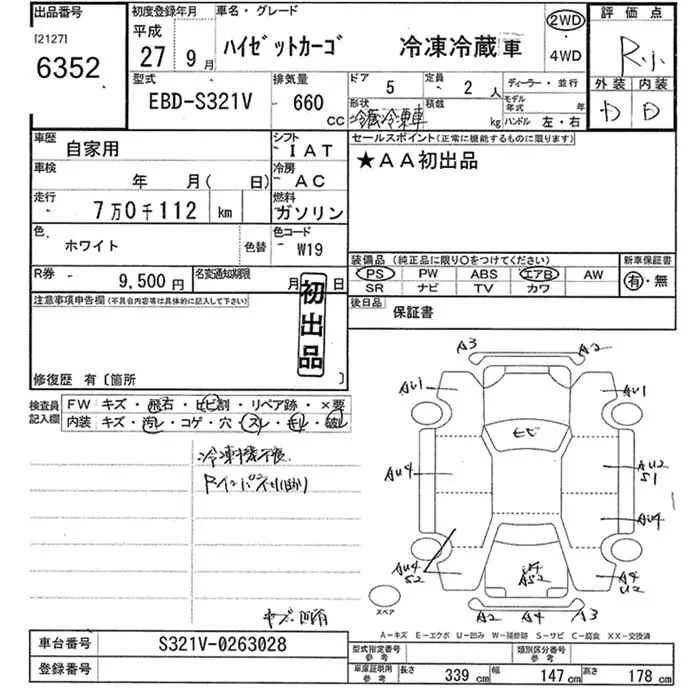 出品番号 初度登録年月 車名・グレード 評価点
[2127] 平成 2WD
6352 27年 9月 ハイゼットカーゴ 冷凍冷蔵車 ・ R
4WD 外装 内装
型式 排気量 ドア 5 定員 2人 ディーラー・並行 D D
EBD-S321V 660 CC 形状 冷蔵冷凍車 積載 kg モデル年式 年
ハンドル 左・右
車歴 自家用 シフト IAT セールスポイント(正常に機能するものに限ります)
車検 年 月( 日) 冷房 AC ★AA初出品
走行 7万0千112 km 燃料 ガソリン
色 ホワイト 色替 色コード W19
装備品(純正品に限り○をつけてください) 新車保証書
R券 9,500円 名変通知期限 月 日 PS PW ABS エアB AW 有・無
SR ナビ TV カワ
注意事項申告欄(不具合内容等は具体的に記入して下さい) 初出品 後日品 保証書
修復歴 有〔箇所 〕
検査員記入欄 FW キズ・飛石・ヒビ割・リペア跡・×要
内装 キズ・汚レ・コゲ・穴・スレ・モノレ・破レ
A3 A2
AU1 AU1
ヒビ
AU4 AU2
S1
AU4
AU4
S2
AS2
A4
U2
スペア
A2 A4 A3
キズ・凹有
A-キズ E-エクボ U-凹み W-補修跡 S-サビ C-腐食 XX-交換済
車台番号 S321V-0263028 型式指定番号 参考 類別区分番号 参考
登録番号 車庫証明用 参考 長さ 339 cm 幅 147 cm 高さ 178 cm